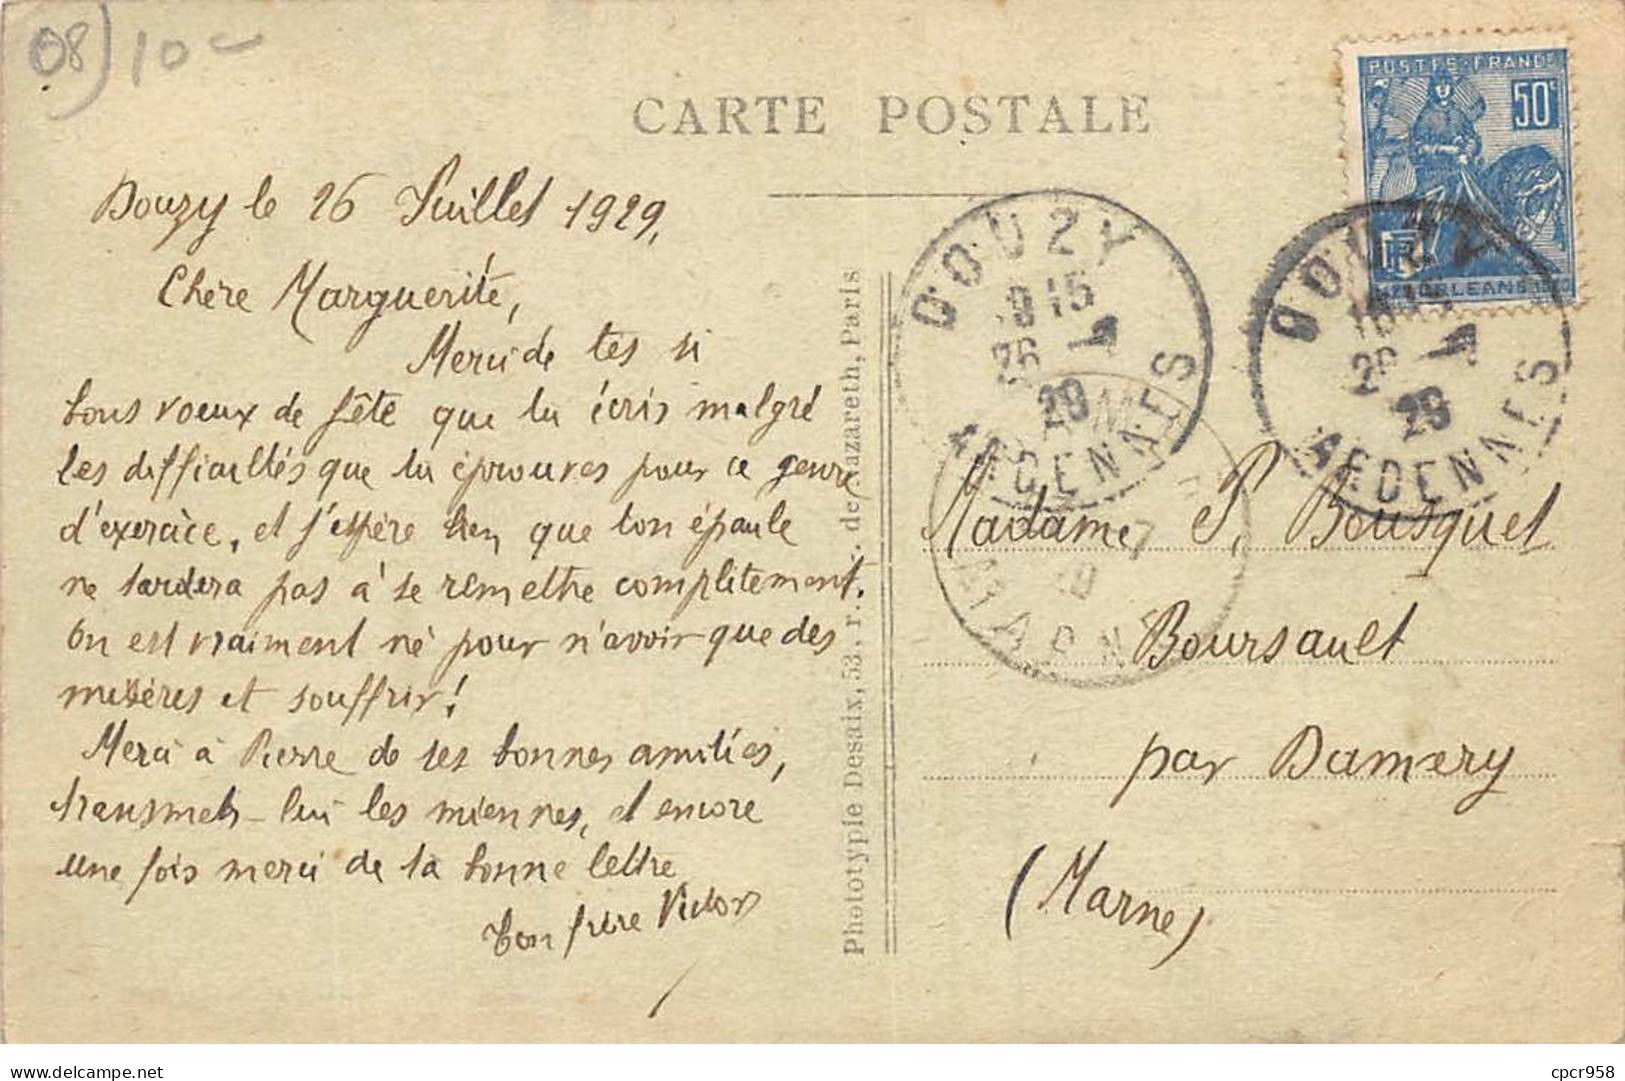 08) 10 -
CARTE POSTALE
POSTES FRANCE
50c
ORLEANS
DOUZY
26
29
ARDENNES
DOUZY
29
ARDENNES
MARNE
Douzy le 26 Juillet 1929,
Chère Marguerite,
Merci de tes si
bons voeux de fête que tu écris malgré
les difficultés que tu éprouves pour ce genre
d'exercice, et j'espère bien que ton épaule
ne tardera pas à se remettre complètement.
On est vraiment né pour n'avoir que des
misères et souffrir !
Merci à Pierre de ses bonnes amitiés,
transmets-lui les miennes, et encore
une fois merci de ta bonne lettre
ton frère Victor
Phototypie Desaix, 53, r. de Nazareth, Paris
Madame P. Bousquet
Boursault
par Damery
(Marne)
cpcr958